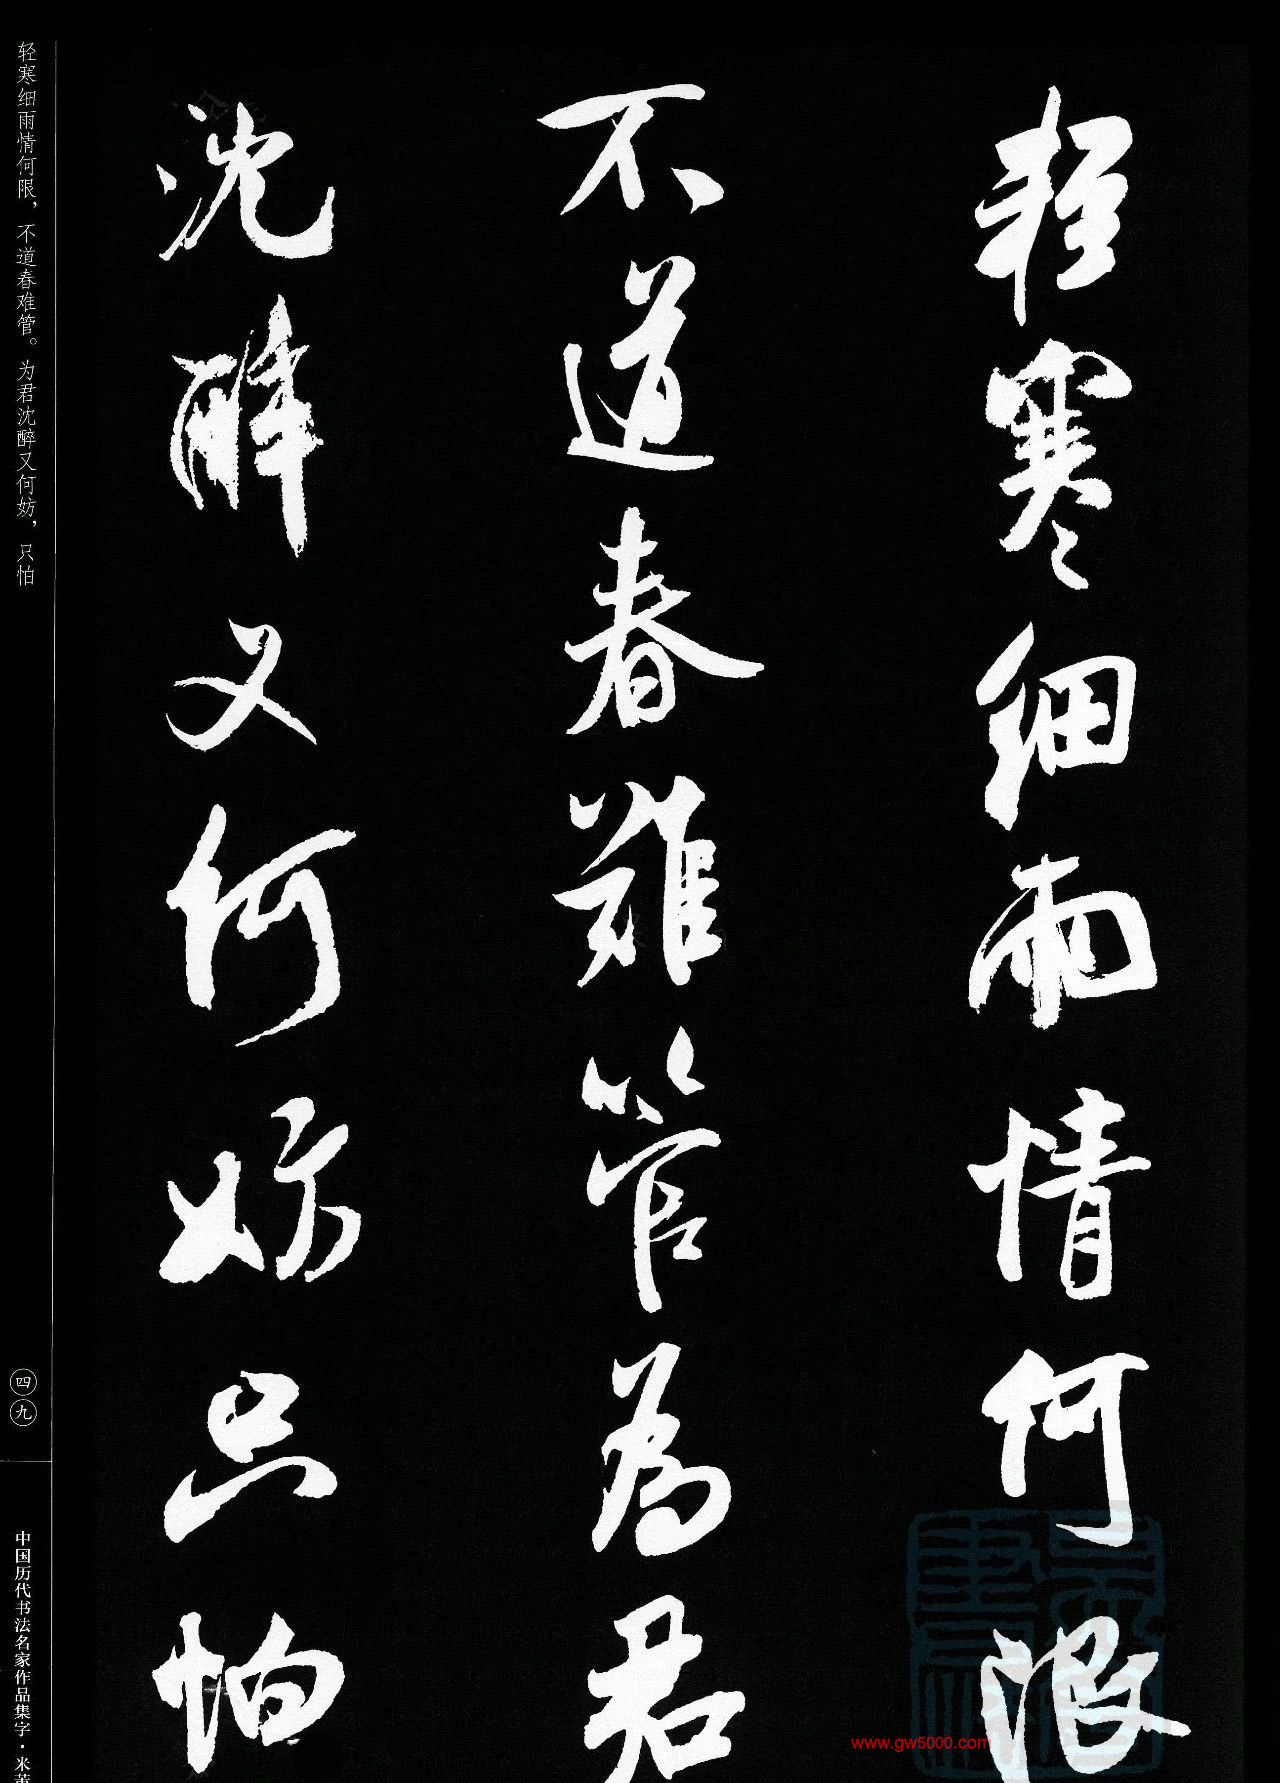 輕寒細雨情何限
不道春難管為君
沈醉又何妨只怕
轻寒细雨情何限，不道春难管。为君沈醉又何妨，只怕
四九
中国历代书法名家作品集字·米芾
www.gw5000.com